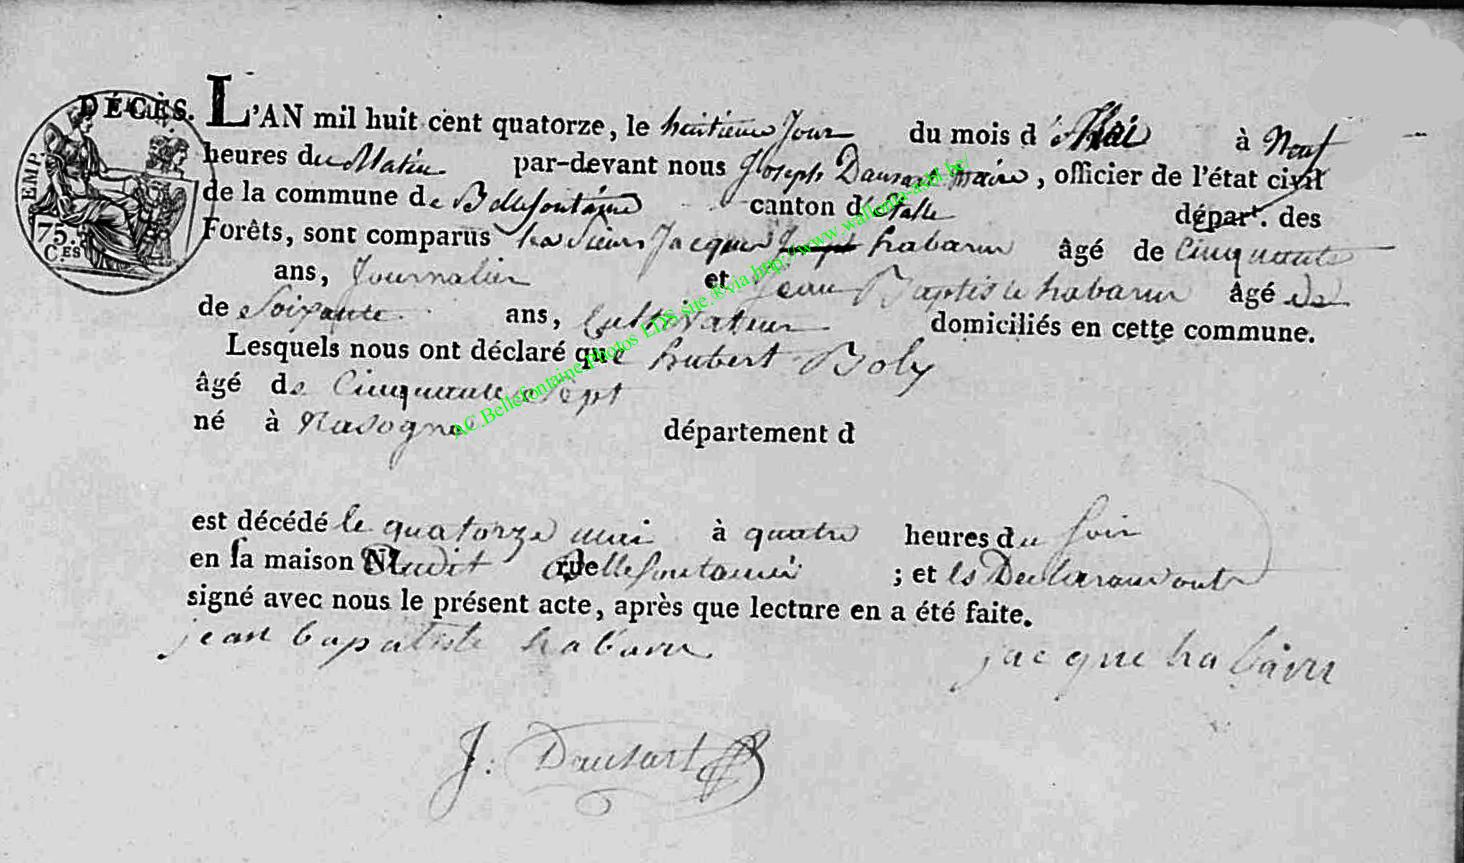 DÉCÈS. L'AN mil huit cent quatorze, le huitieme jour du mois de Mai à Neuf
heures du Matin par-devant nous Joseph Dausart Maire, officier de l'état civil
de la commune de Bellefontaine canton d'Etalle départ. des
Forêts, sont comparus les sieurs Jacques habaru âgé de Cinquante
ans, Journalier et Jean Baptiste habaru âgé de
de Soixante ans, Cultivateur domiciliés en cette commune.
Lesquels nous ont déclaré que hubert Boly
âgé de Cinquante Sept
né à Nasogne département d
est décédé le quatorze mai à quatre heures du soir
en sa maison audit Bellefontaine ; et les Declarans ont
signé avec nous le présent acte, après que lecture en a été faite.
jean bapatiste habaru jacque habaru
J: Dausart
EMP.
75.
C.ES
AC.Bellefontaine Photos EDS site ®via http://www.wallonia-asbl.be/